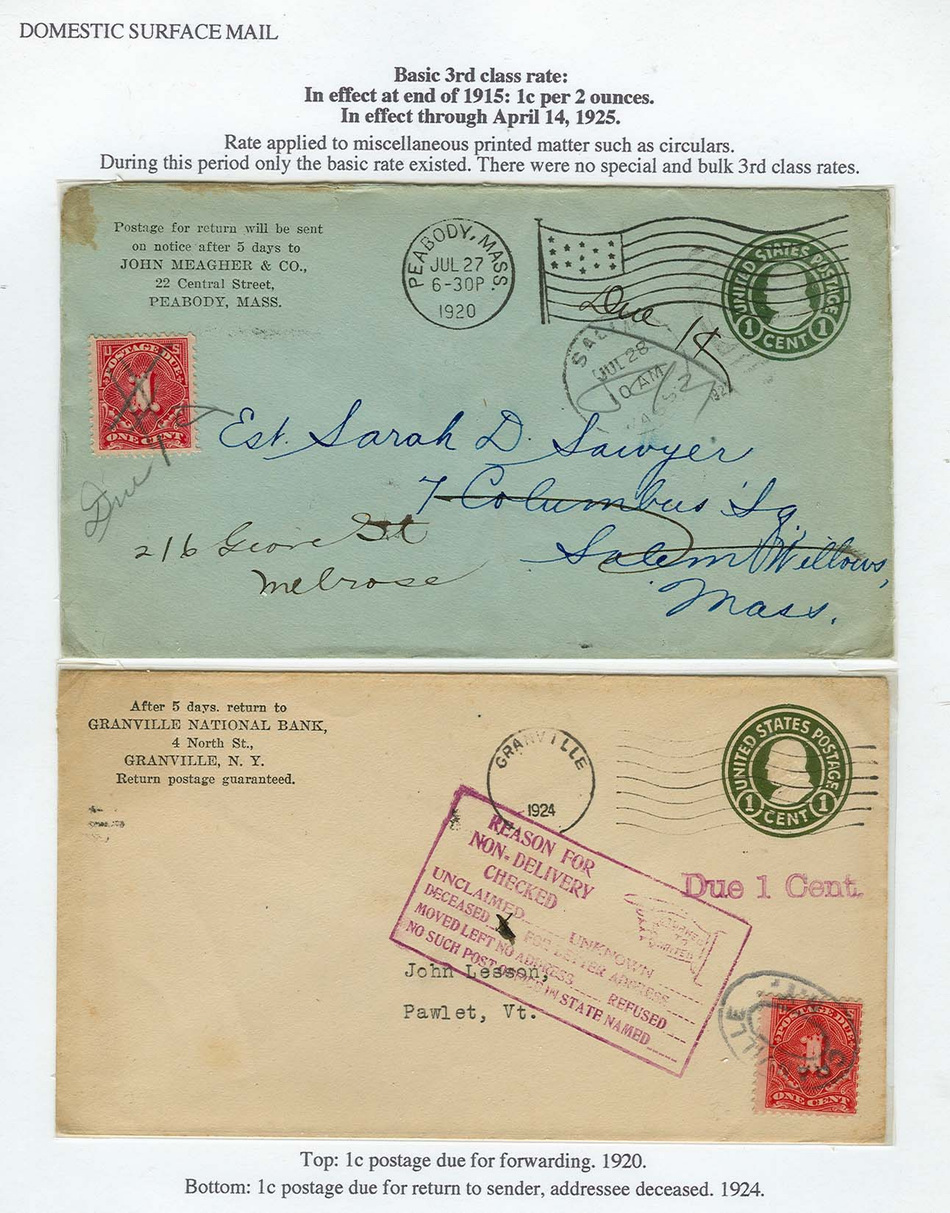 DOMESTIC SURFACE MAIL
Basic 3rd class rate:
In effect at end of 1915: 1c per 2 ounces.
In effect through April 14, 1925.
Rate applied to miscellaneous printed matter such as circulars.
During this period only the basic rate existed. There were no special and bulk 3rd class rates.
Postage for return will be sent
on notice after 5 days to
JOHN MEAGHER & CO.,
22 Central Street,
PEABODY, MASS.
PEABODY, MASS.
JUL 27
6-30P
1920
UNITED STATES POSTAGE
1 CENT 1
Due 1¢
JUL 28
MASS.
POSTAGE DUE
1
ONE CENT
Due 1¢
Est. Sarah D. Sawyer
7 Columbus Sq
Salem Willows,
Mass.
216 Grove St
Melrose
After 5 days. return to
GRANVILLE NATIONAL BANK,
4 North St.,
GRANVILLE, N. Y.
Return postage guaranteed.
GRANVILLE
1924
UNITED STATES POSTAGE
1 CENT 1
Due 1 Cent.
REASON FOR
NON-DELIVERY
CHECKED
UNCLAIMED UNKNOWN
DECEASED FOR BETTER ADDRESS
MOVED LEFT NO ADDRESS REFUSED
NO SUCH POST OFFICE IN STATE NAMED
RETURNED
TO
WRITER
John Lesson,
Pawlet, Vt.
POSTAGE DUE
1
ONE CENT
Top: 1c postage due for forwarding. 1920.
Bottom: 1c postage due for return to sender, addressee deceased. 1924.